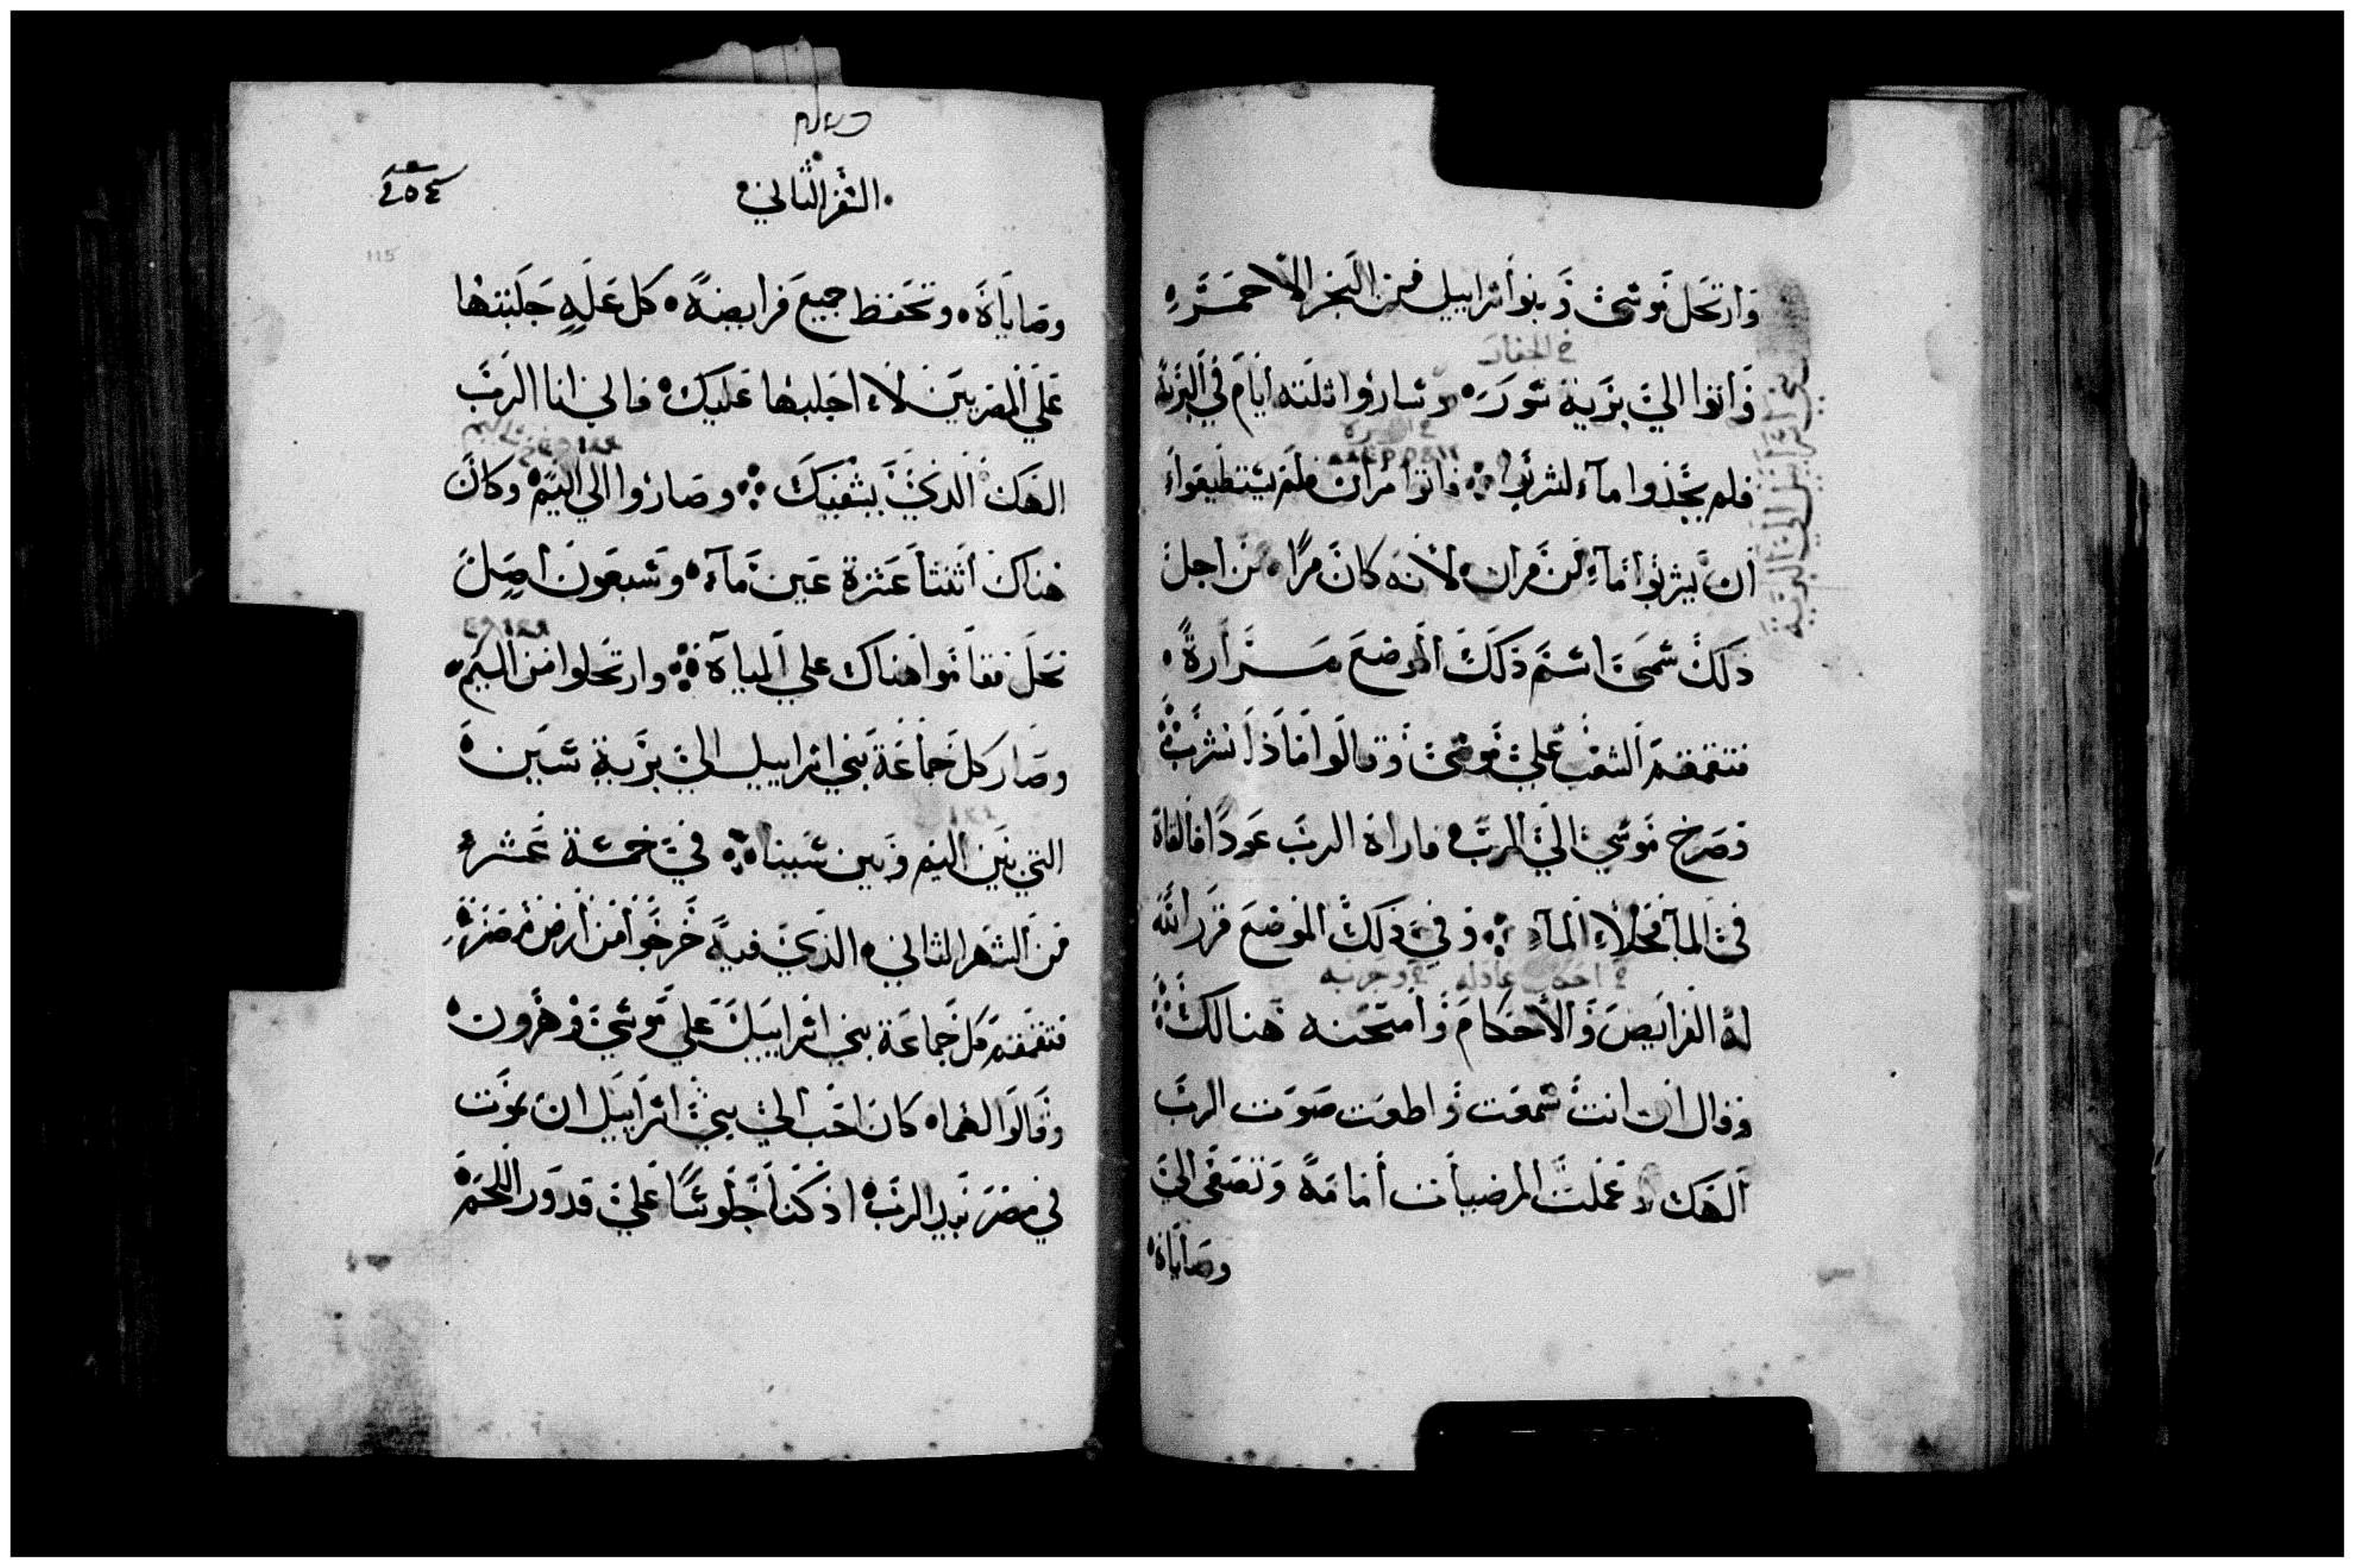 وارتحل موسى وبنوا اسراييل من البحر الاحمر
خ الجفار
واتوا الى برية سور وساروا ثلثه ايام في البرية
فلم يجدوا مآء ليشربوا فاتوا مران فلم يستطيعواء
ان يشربوا مآء من مران لانه كان مرا من اجل
ذلك سمى اسم ذلك الموضع مرارة
فتقمقم الشعب على موسى وقالوا ماذا نشرب
فصرخ موسى الى الرب فاراه الرب عودا فالقاة
فى المآ فحلا المآء وفي ذلك الموضع قرر الله
خ احكام عادله خ وجربه
لة الفرايض والاحكام وامتحنه هنالك
وقال ان انت سمعت واطعت صوت الرب
الهك وعملت المرضيات امامة وتصغى الى
وصاياة
السفر الثاني
115
وصاياة وتحفظ جميع فرايضة كل علة جلبتها
على المصريين لا اجلبها عليك فانى انا الرب
الهك الذى يشفيك وصاروا الى اليم وكان
هناك اثنتا عشرة عين مآء وسبعون اصل
نخل فقاموا هناك على المياة وارتحلوا من اليم
وصار كل جماعة بني اسراييل الى برية سين
التي بين اليم وبين سينا في خمسة عشر
من الشهر الثاني الذى فية خرجوا من ارض مصر
فتقمقم كل جماعة بني اسراييل على موسى وهرون
وقالوا لهما كان احب الى بنى اسراييل ان نموت
في مصر بيد الرب اذ كنا جلوسا على قدور اللحم